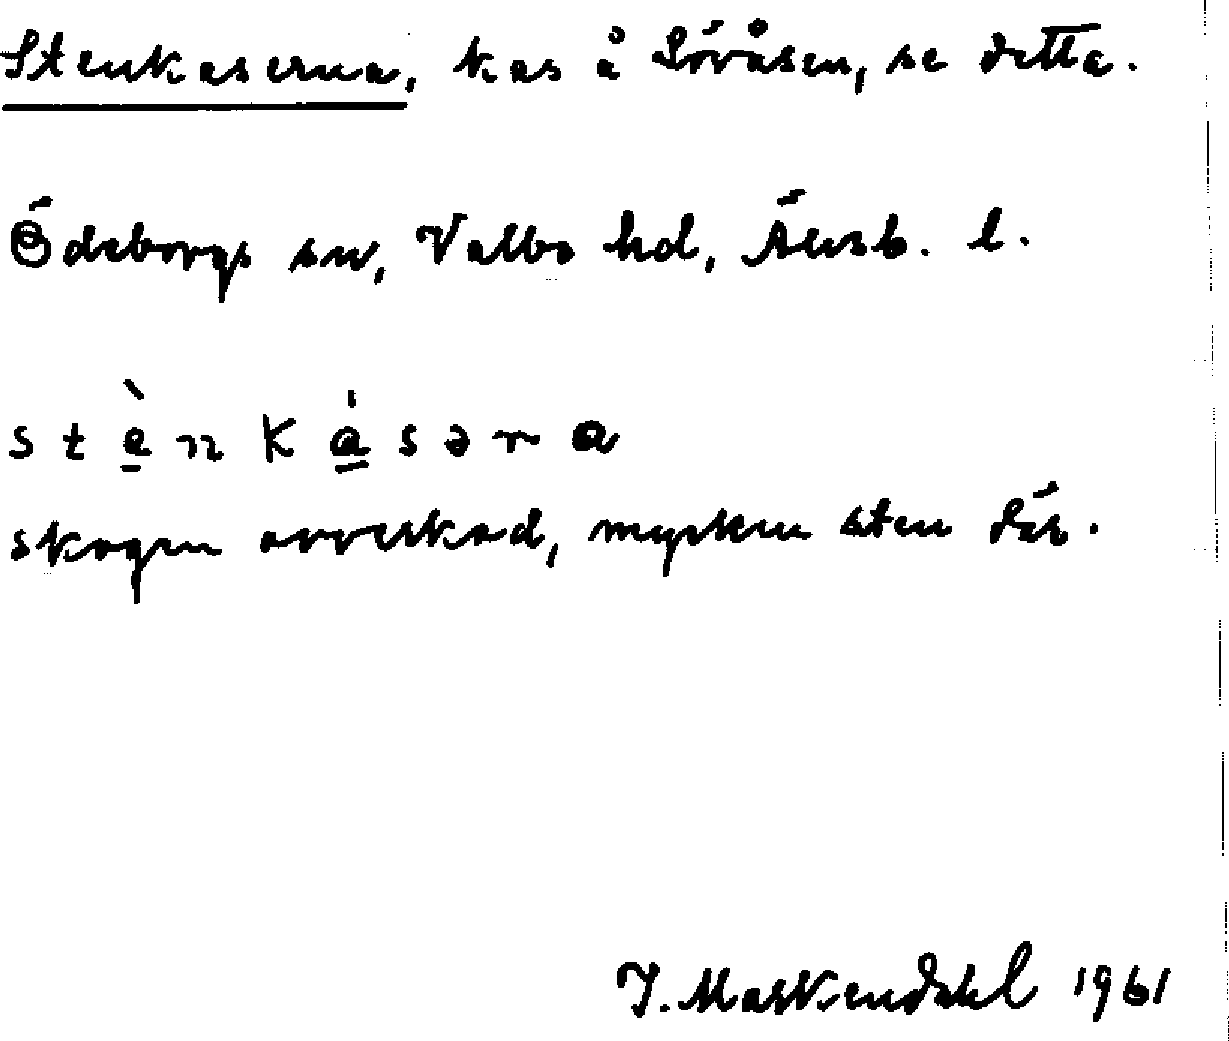 Stenkaserna, kas å Lövåsen, se detta.
Ödeborgs sn, Valbo hd, Älvsb. l.
stènkásəra
skogen avverkad, mycken sten där.
J. Maskendahl 1961